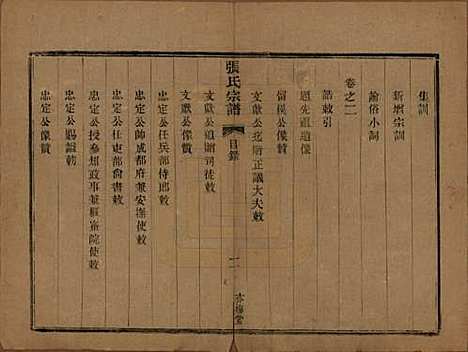 集訓
新增宗訓
諭俗小詞
卷之二
誥敕引
遠先祖遺像
留侯公像贊
文獻公迄贈正議大夫敕
張氏宗譜
目錄
二
孝友堂
文獻公追贈司徒敕
文獻公像贊
忠定公任兵部侍郎敕
忠定公帥成都府兼安撫使敕
忠定公任吏部尙書敕
忠定公授參知政事兼樞密院使敕
忠定公賜諡敕
忠定公像贊